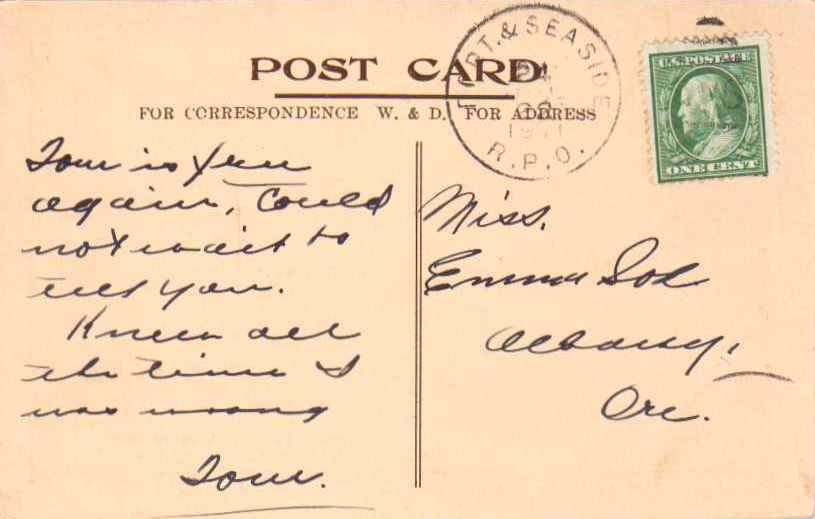 POST CARD
FOR CORRESPONDENCE W. & D. FOR ADDRESS
PORT. & SEASIDE
R.P.O.
U.S. POSTAGE
ONE CENT
Tom is
again, Could
not wait to
tell you.
Knew all
the time I
was wrong
Tom.
Miss.
Emma
Albany,
Ore.